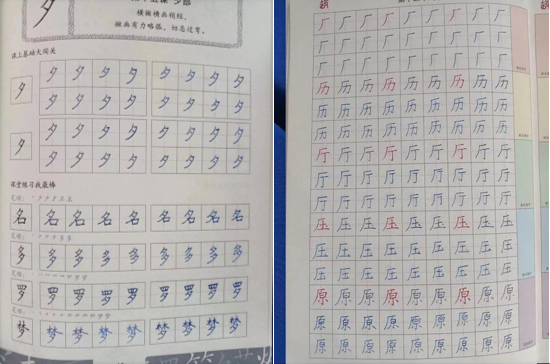 夕
夕部
横撇横画稍短,
撇画有力略弧,切忌过弯。
课上基础大闯关
夕 夕 夕 夕 夕 夕 夕 夕
夕
夕 夕 夕 夕 夕 夕 夕 夕
夕 夕 夕 夕 夕 夕 夕 夕
夕
夕 夕 夕 夕 夕 夕 夕 夕
课堂练习我最棒
笔顺:
名 名 名 名 名 名 名 名 名
笔顺:
多 多 多 多 多 多 多 多 多
笔顺:
罗 罗 罗 罗 罗 罗 罗 罗 罗
笔顺:
梦 梦 梦 梦 梦 梦 梦 梦 梦
厂 厂 厂 厂 厂 厂 厂 厂
厂 厂 厂 厂 厂 厂 厂 厂
厂 厂 厂 厂 厂 厂 厂 厂
历 历 历 历 历 历 历 历
历 历 历 历 历 历 历 历
历 历 历 历 历 历 历 历
厅 厅 厅 厅 厅 厅 厅 厅
厅 厅 厅 厅 厅 厅 厅 厅
厅 厅 厅 厅 厅 厅 厅 厅
压 压 压 压 压 压 压 压
压 压 压 压 压 压 压 压
压 压 压 压 压 压 压 压
原 原 原 原 原 原 原 原
原 原 原 原 原 原 原 原
原 原 原 原 原 原 原 原